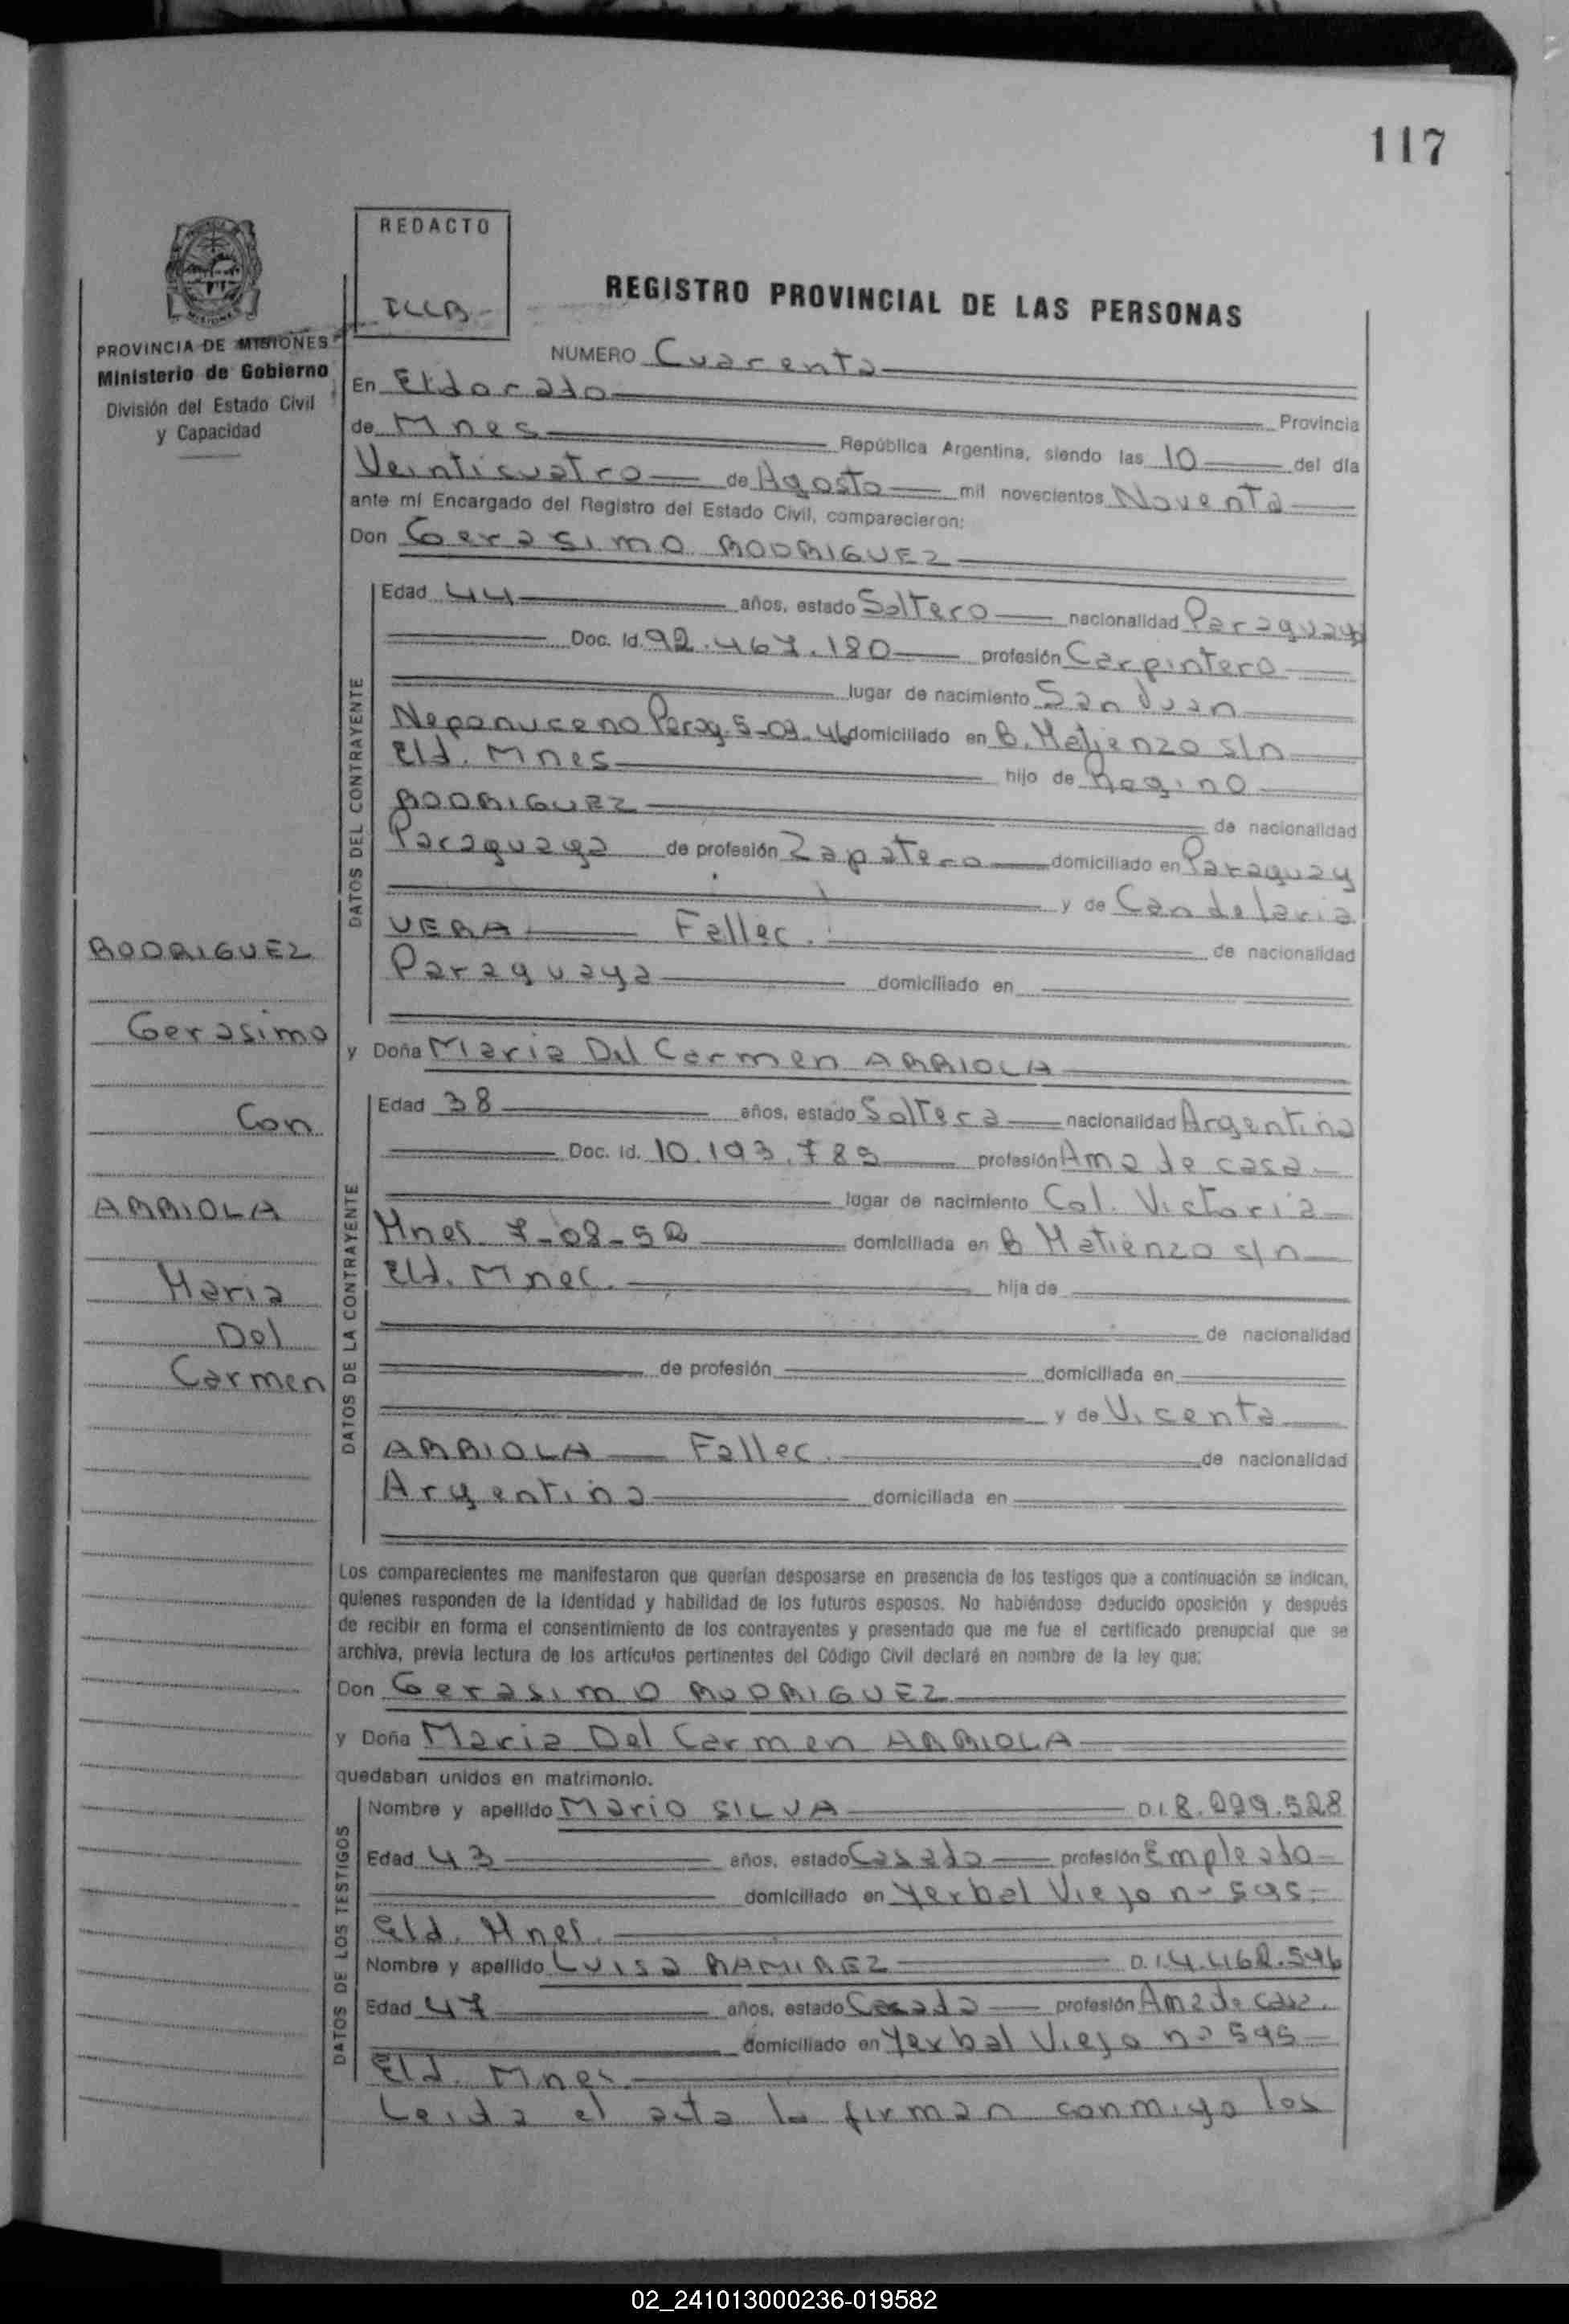 117
REDACTO
REGISTRO PROVINCIAL DE LAS PERSONAS
PROVINCIA DE MISIONES
Ministerio de Gobierno
División del Estado Civil
y Capacidad
NUMERO Cuarenta
En Eldorado Provincia
de Mnes República Argentina, siendo las 10 del día
Veinticuatro de Agosto mil novecientos Noventa
ante mí Encargado del Registro del Estado Civil, comparecieron:
Don Gerasimo RODRIGUEZ
DATOS DEL CONTRAYENTE
Edad 44 años, estado Soltero nacionalidad Paraguay
Doc. Id. 92.467.180 profesión Carpintero
lugar de nacimiento San Juan
Neponuceno Paray. 5-03-46 domiciliado en B. Matienzo s/n
Eld. Mnes hijo de Regino
RODRIGUEZ de nacionalidad
Paraguaya de profesión Zapatero domiciliado en Paraguay
y de Candelaria
VERA Fallec. de nacionalidad
Paraguaya domiciliado en
RODRIGUEZ
Gerasimo
Con
ARRIOLA
Maria
Del
Carmen
y Doña Maria Del Carmen ARRIOLA
DATOS DE LA CONTRAYENTE
Edad 38 años, estado Soltera nacionalidad Argentina
Doc. Id. 10.193.789 profesión Ama de casa
lugar de nacimiento Col. Victoria
Mnes 7-08-52 domiciliada en B Matienzo s/n
Eld. Mnes. hija de
de nacionalidad
de profesión domiciliada en
y de Vicenta
ARRIOLA Fallec. de nacionalidad
Argentina domiciliada en
Los comparecientes me manifestaron que querían desposarse en presencia de los testigos que a continuación se indican,
quienes responden de la identidad y habilidad de los futuros esposos. No habiéndose deducido oposición y después
de recibir en forma el consentimiento de los contrayentes y presentado que me fue el certificado prenupcial que se
archiva, previa lectura de los artículos pertinentes del Código Civil declaré en nombre de la ley que:
Don Gerasimo RODRIGUEZ
y Doña Maria Del Carmen ARRIOLA
quedaban unidos en matrimonio.
DATOS DE LOS TESTIGOS
Nombre y apellido Mario SILVA D.I. 8.299.528
Edad 43 años, estado Casado profesión Empleado
domiciliado en Yerbal Viejo nº 595
Eld. Mnes.
Nombre y apellido Luisa RAMIREZ D.I. 4.468.546
Edad 47 años, estado Casada profesión Ama de casa.
domiciliado en Yerbal Viejo nº 595
Eld. Mnes.
Leida el acta la firman conmigo los
02_241013000236-019582